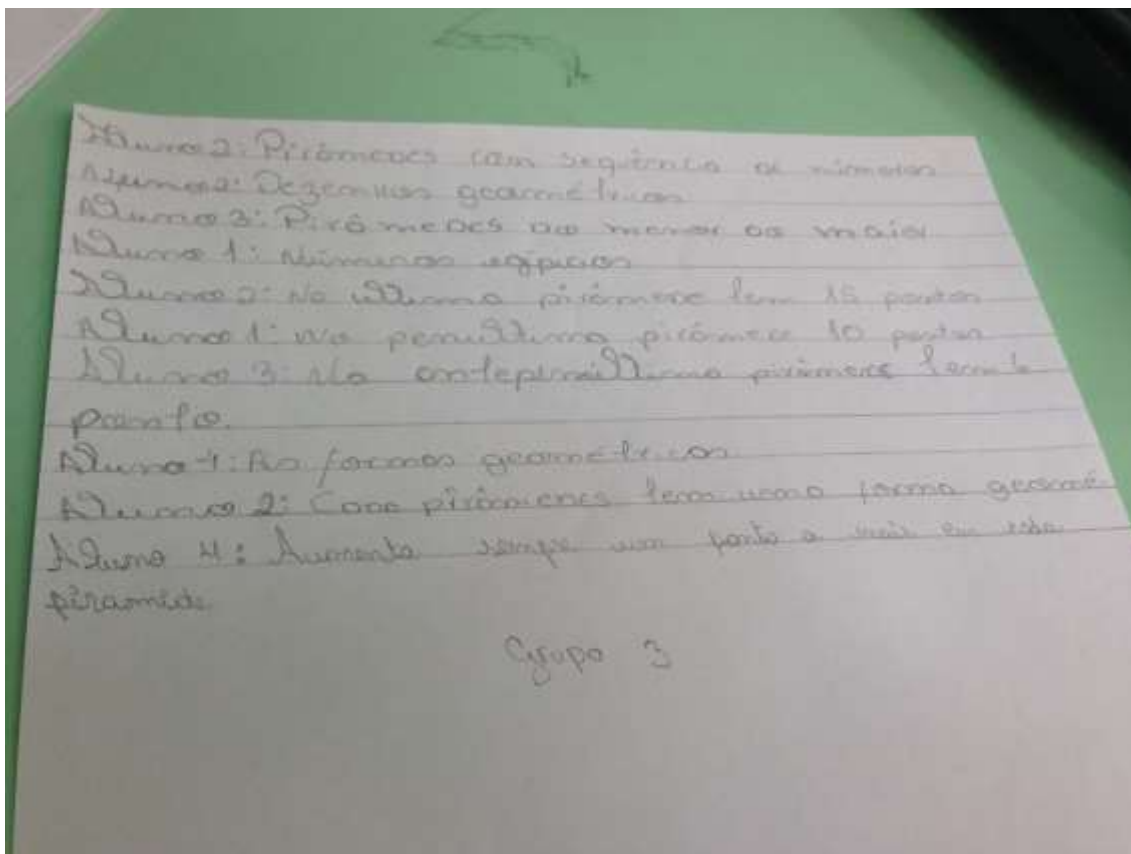 Aluno 2: Pirâmedes com sequência de números
Aluno 2: Dezenhos geométricos
Aluno 3: Pirâmedes do menor ao maior
Aluno 1: Números egípcios
Aluno 2: No último pirâmede tem 15 pontos
Aluno 1: No penúltimo pirâmede 10 pontos
Aluno 3: No antepenúltimo pirâmede tem
ponto.
Aluno 1: As formas geométricas
Aluno 2: Cada pirâmedes tem uma forma geomé
Aluno 4: Aumenta sempre um ponto a mais em cada
piramide.
Grupo 3